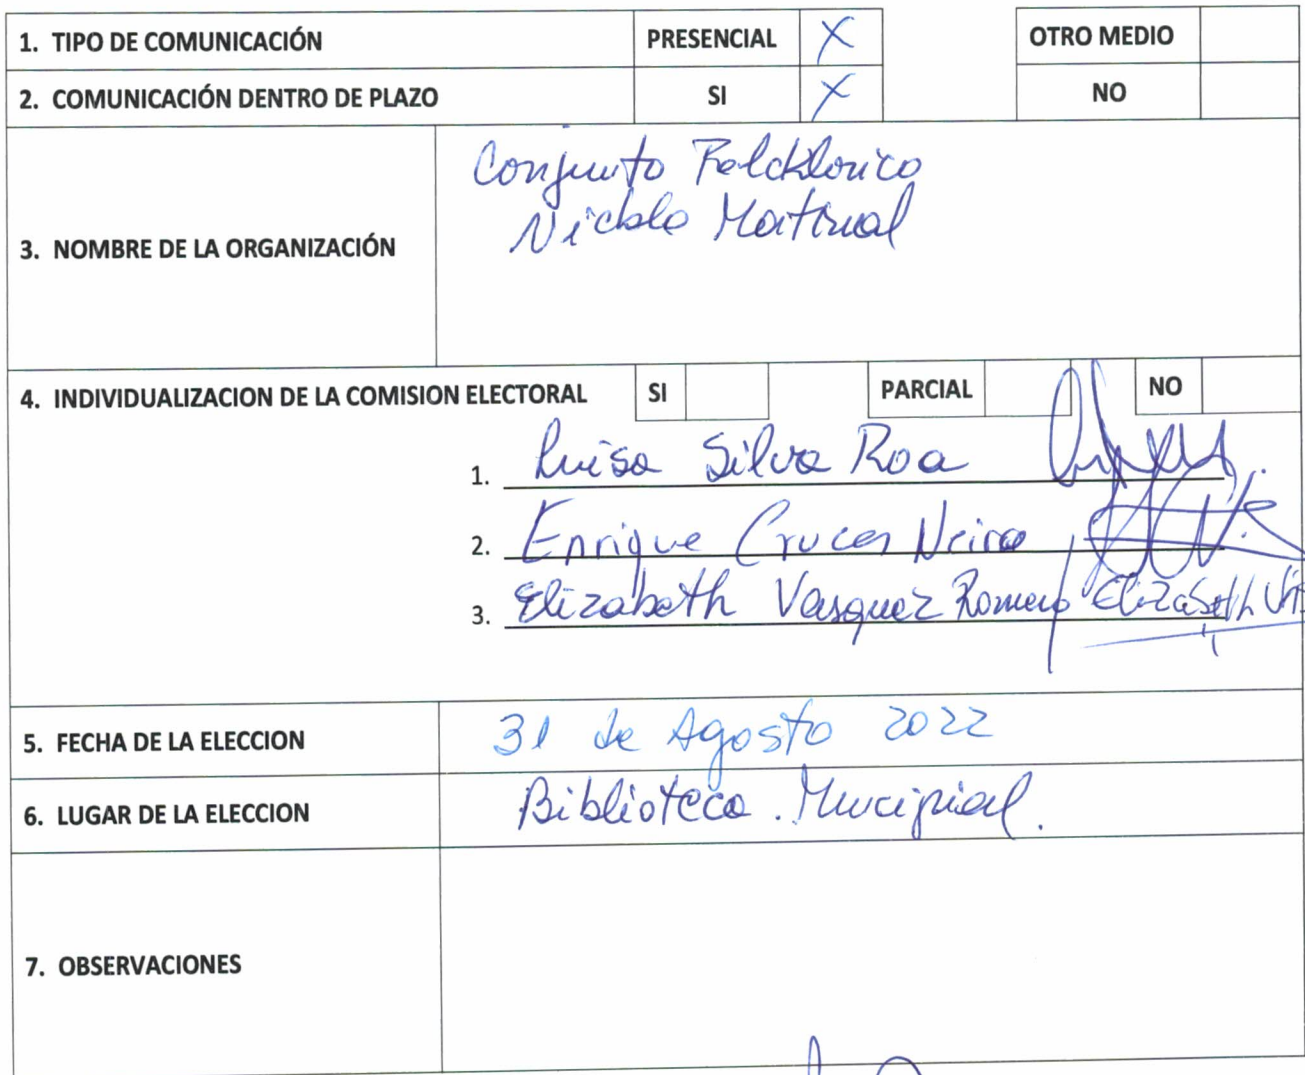 1. TIPO DE COMUNICACIÓN PRESENCIAL X OTRO MEDIO
2. COMUNICACIÓN DENTRO DE PLAZO SI X NO
3. NOMBRE DE LA ORGANIZACIÓN
Conjunto Folcklorico
Matinal
4. INDIVIDUALIZACION DE LA COMISION ELECTORAL SI PARCIAL NO
1. Luisa Silva Roa
2. Enrique Cruces Neira
3. Elizabeth Vasquez Romero Elizabeth
5. FECHA DE LA ELECCION 31 de Agosto 2022
6. LUGAR DE LA ELECCION Biblioteca. Municipal.
7. OBSERVACIONES